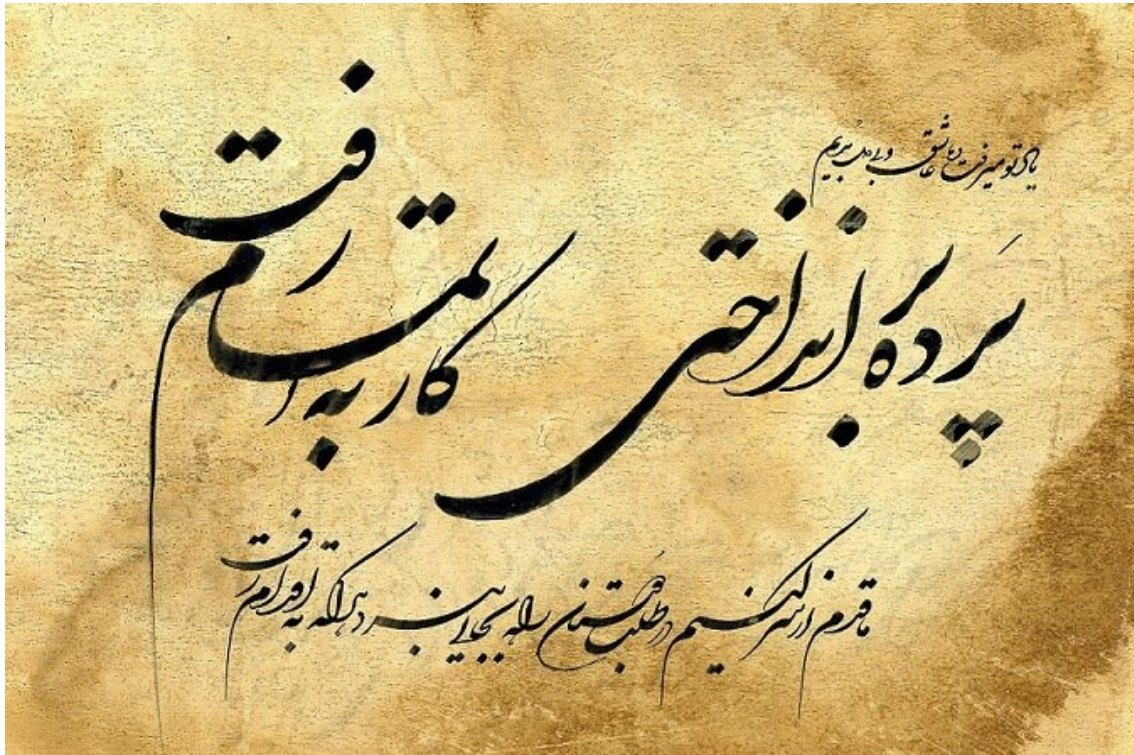 یاد تو میرفت و ما عاشق و بیدل بدیم
پرده برانداختی کار به اتمام رفت
ما قدم از سر کنیم در طلب دوستان
راه بجایی نبرد هر که به اقدام رفت